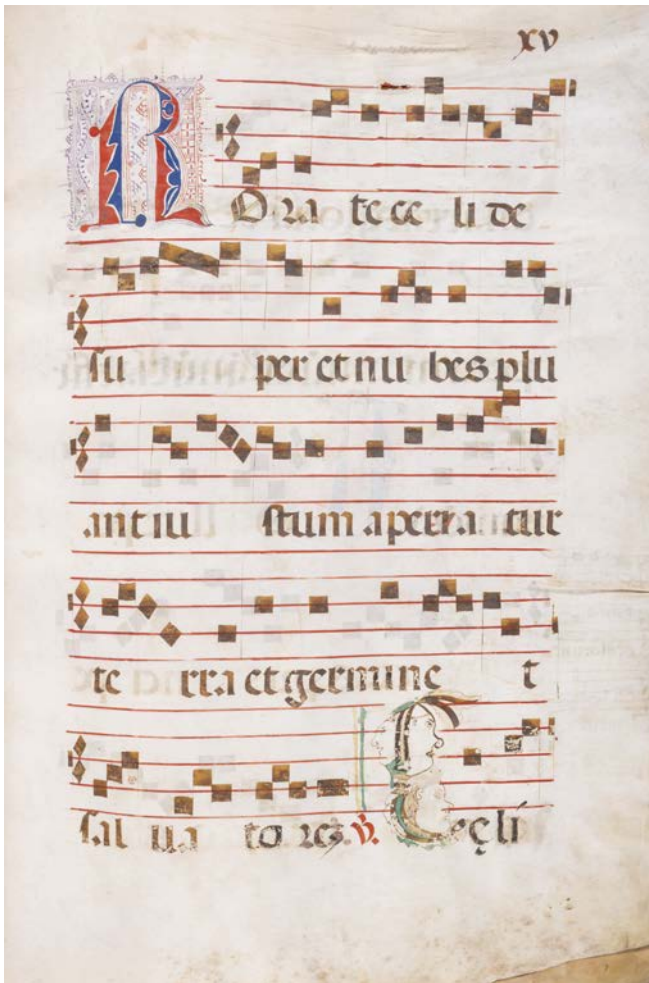 xv
RORate celi de
su per et nu bes plu
ant iu stum aperia tur
te rra et germine t
sal ua to rez. V. Celi